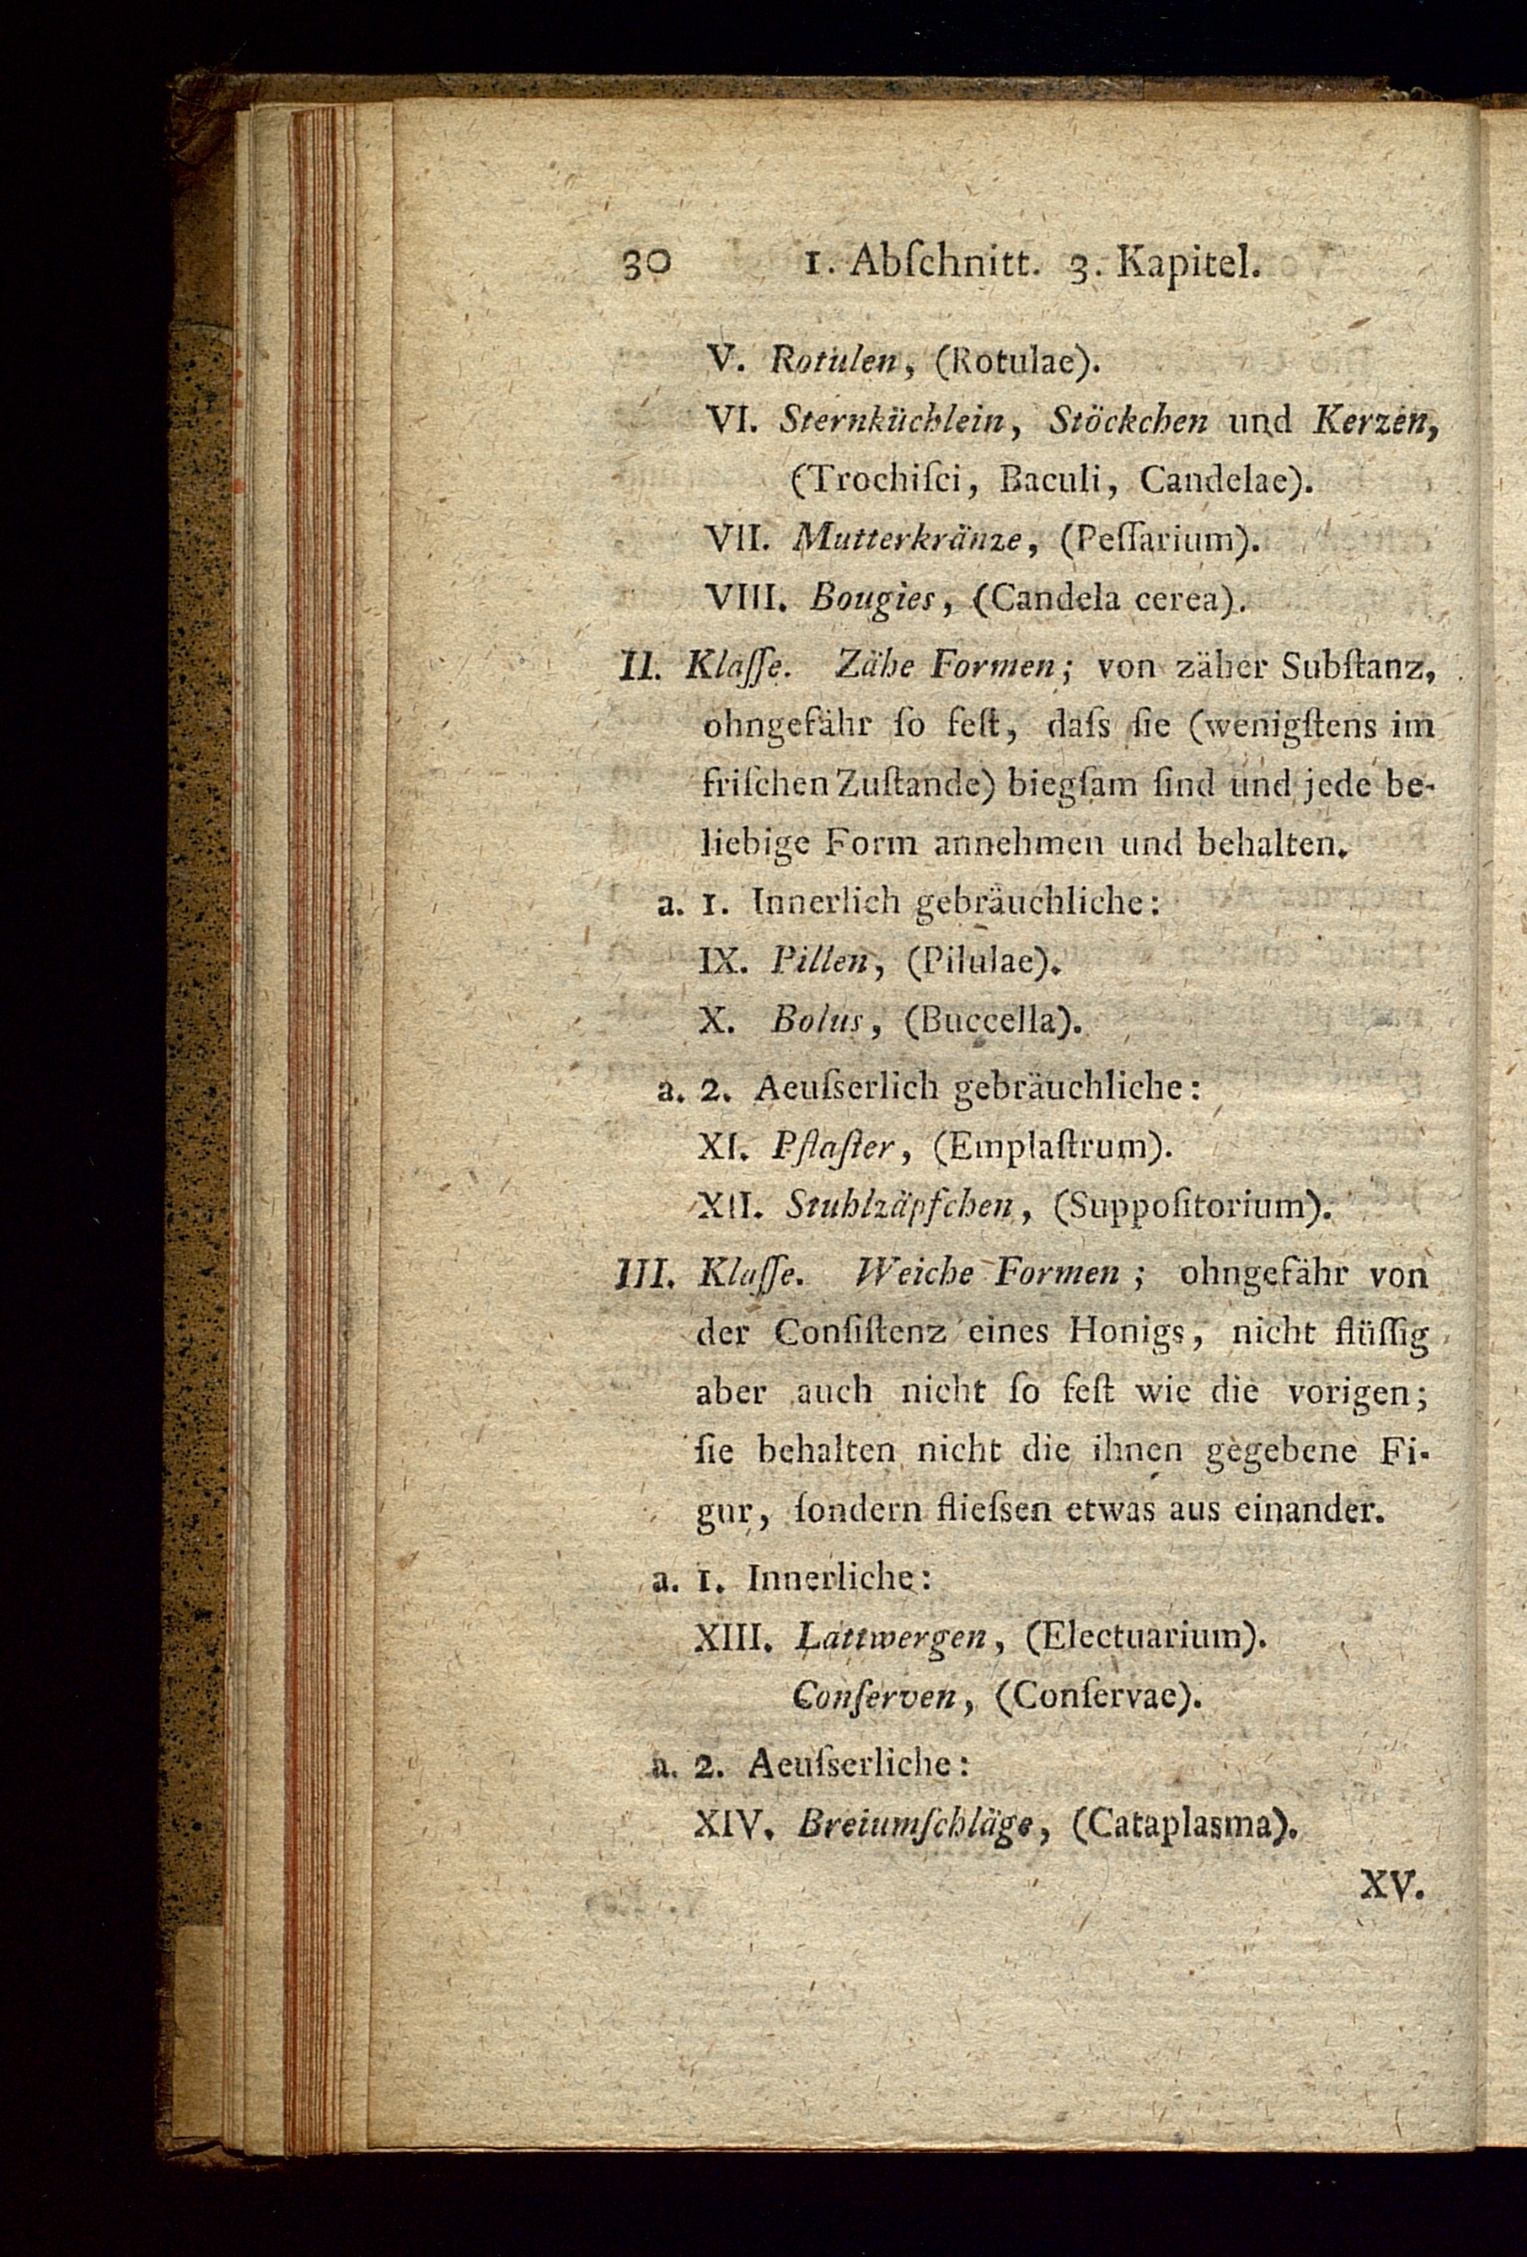 30 1. Abſchnitt. 3. Kapitel.
V. Rotulen, (Rotulae).
VI. Sternküchlein, Stöckchen und Kerzen,
(Trochiſci, Baculi, Candelae).
VII. Mutterkränze, (Peſſarium).
VIII. Bougies, (Candela cerea).
II. Klaſſe. Zähe Formen; von zäher Subſtanz,
ohngefähr ſo feſt, daſs ſie (wenigſtens im
friſchen Zuſtande) biegſam ſind und jede be-
liebige Form annehmen und behalten.
a. 1. Innerlich gebräuchliche:
IX. Pillen, (Pilulae).
X. Bolus, (Buccella).
a. 2. Aeuſserlich gebräuchliche:
XI. Pflaſter, (Emplaſtrum).
XII. Stuhlzäpfchen, (Suppoſitorium).
III. Klaſſe. Weiche Formen; ohngefähr von
der Conſiſtenz eines Honigs, nicht flüſſig
aber auch nicht ſo feſt wie die vorigen;
ſie behalten nicht die ihnen gegebene Fi-
gur, ſondern flieſsen etwas aus einander.
a. 1. Innerliche:
XIII. Lattwergen, (Electuarium).
Conſerven, (Conſervae).
a. 2. Aeuſserliche:
XIV. Breiumſchläge, (Cataplasma).
XV.